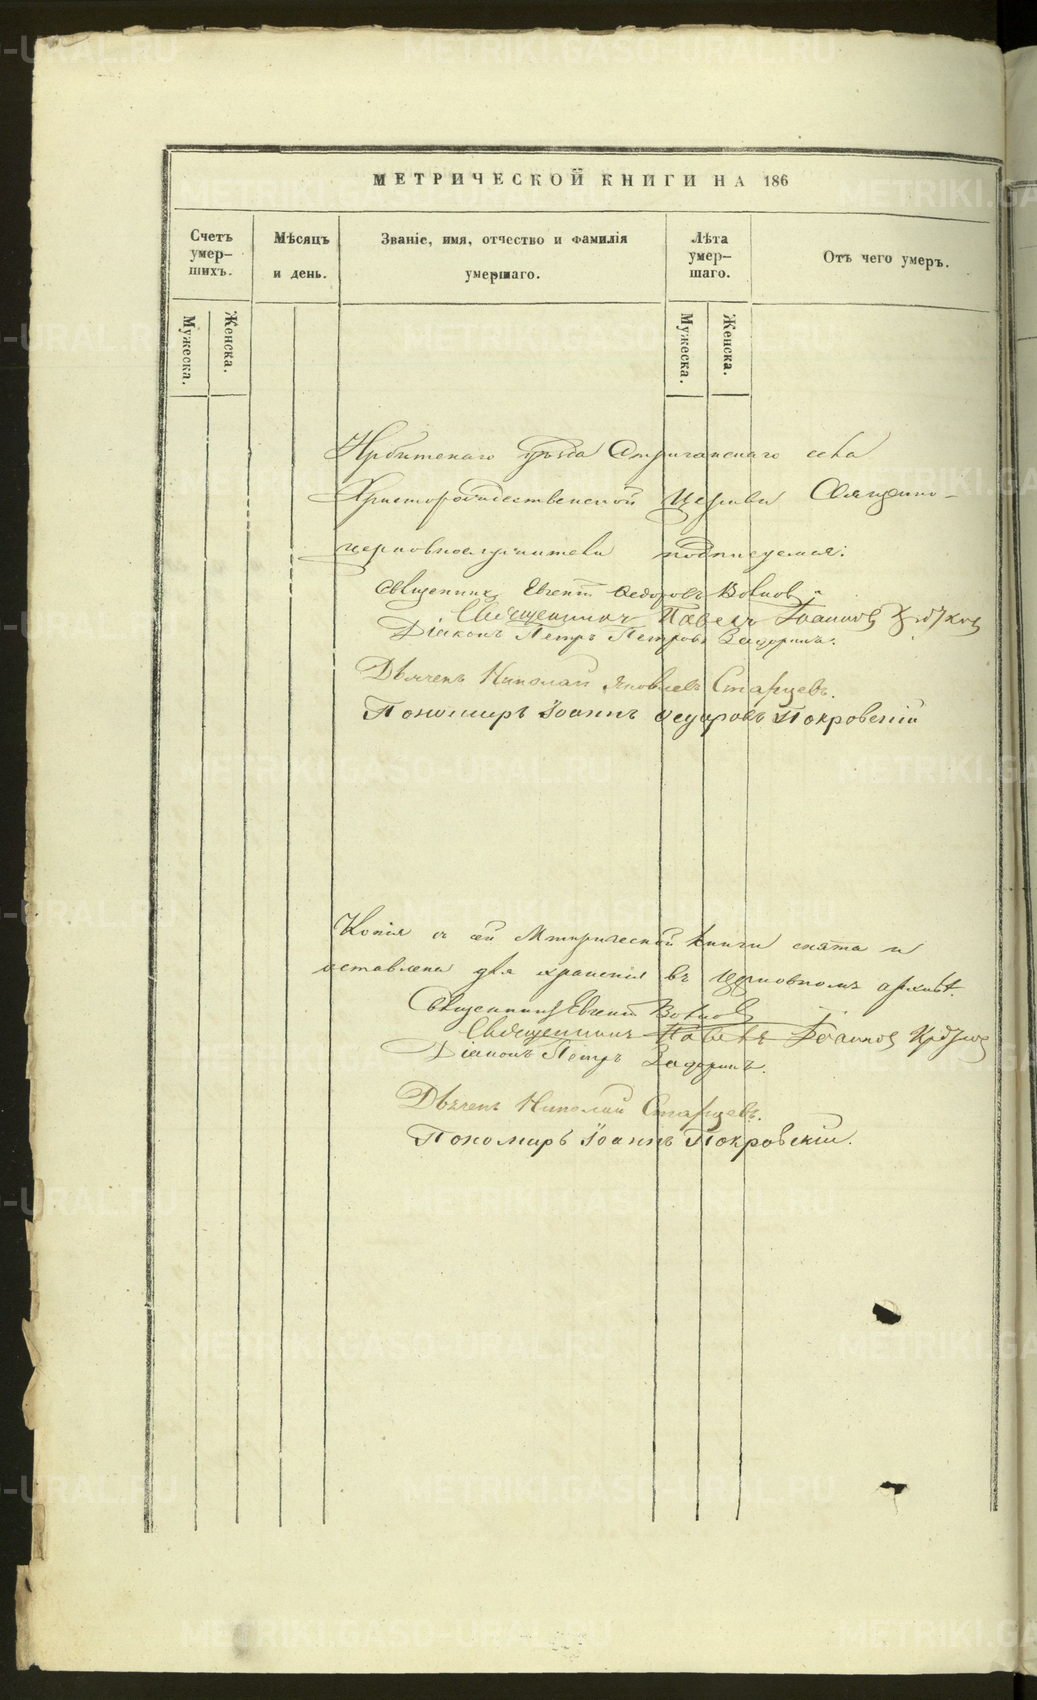 МЕТРИЧЕСКОЙ КНИГИ НА 186
Счетъ умер-
шихъ.
Мѣсяцъ
и день.
Званіе, имя, отчество и фамилія
умершаго.
Лѣта
умер-
шаго.
Отъ чего умеръ.
Мужеска.
Женска.
Мужеска.
Женска.
Ирбитскаго уѣзда Стриганскаго села
Христорождественской Церкви Священно-
церковнослужители подписуемся:
Священникъ Евгеній Федоровъ
Священникъ Павелъ Іоанновъ
Діаконъ Петръ Петровъ Задоринъ.
Дьячекъ Николай Яковлевъ Старцевъ.
Пономарь Іоаннъ Федоровъ Покровскій
Копія съ сей Метрической книги снята и
оставлена для храненія въ церковномъ архивѣ.
Священникъ Евгеній
Священникъ Павелъ Іоанновъ
Діаконъ Петръ Задоринъ.
Дьячекъ Николай Старцевъ.
Пономарь Іоаннъ Покровскій.
METRIKI.GASO-URAL.RU